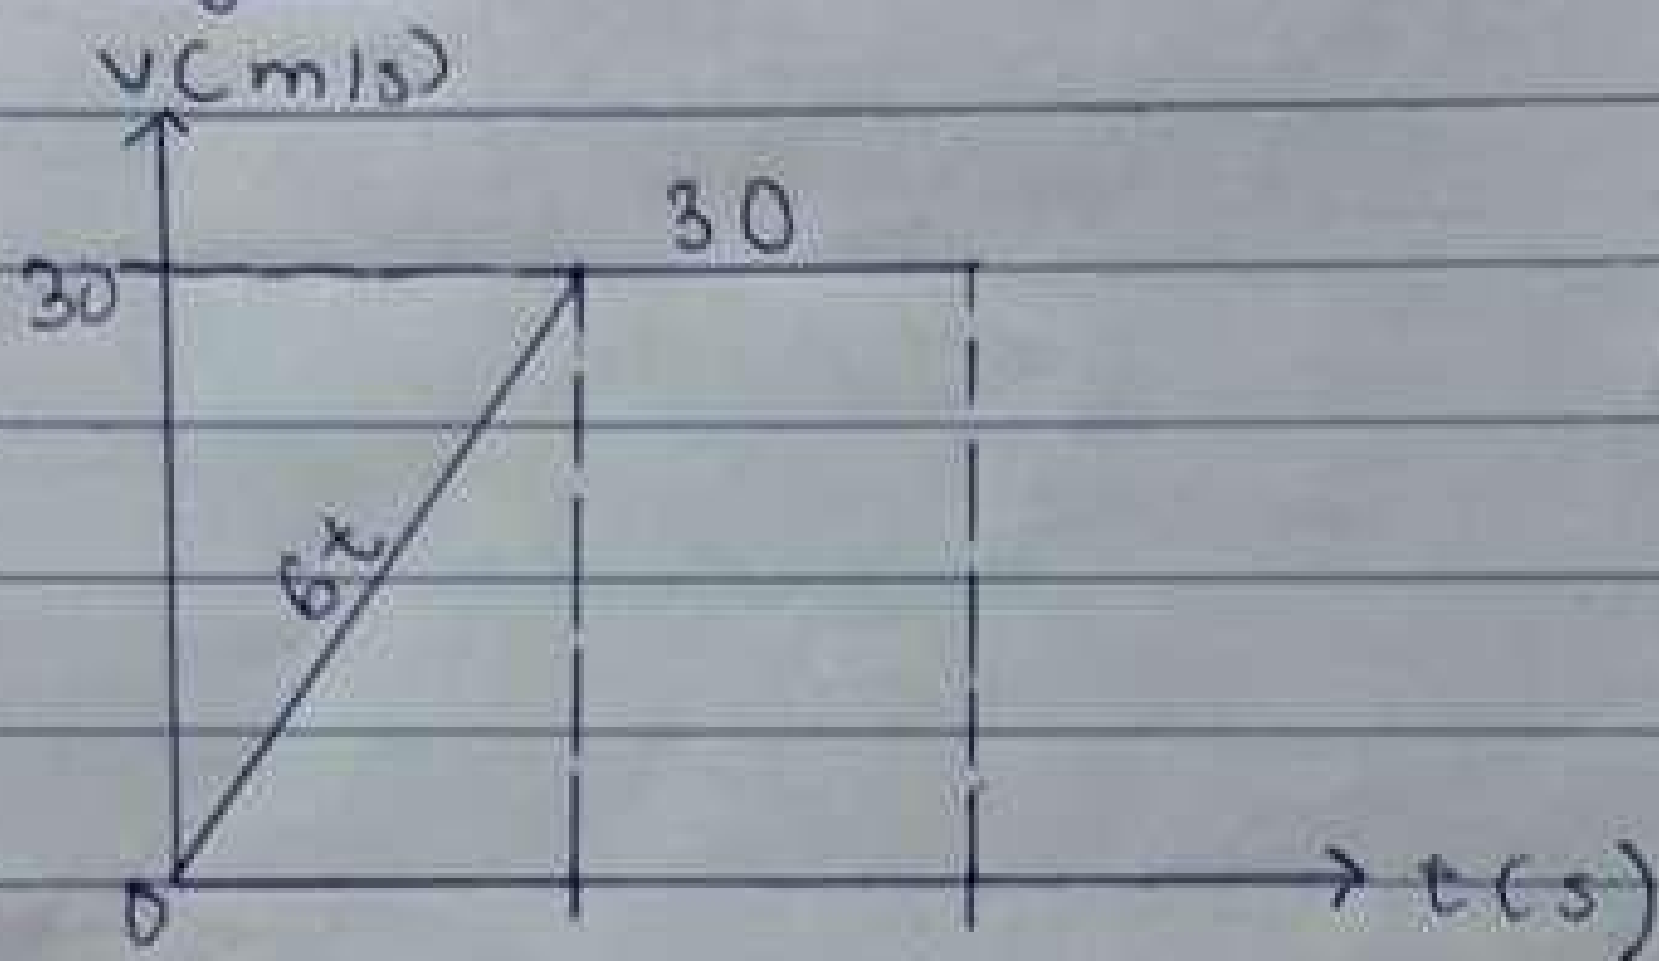 v(m/s)
30
30
6x
0
t(s)